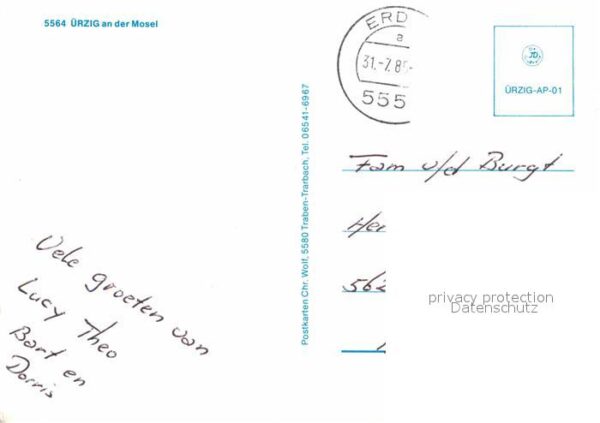 5564 ÜRZIG an der Mosel
ERD
a
31.-7.85-
555
ÜRZIG-AP-01
Postkarten Chr. Wolf, 5580 Traben-Trarbach, Tel. 06541-6967
Fam v/d Burgt
Hei
562
privacy protection
Datenschutz
Vele groeten van
Lucy Theo
Bart en
Dorris